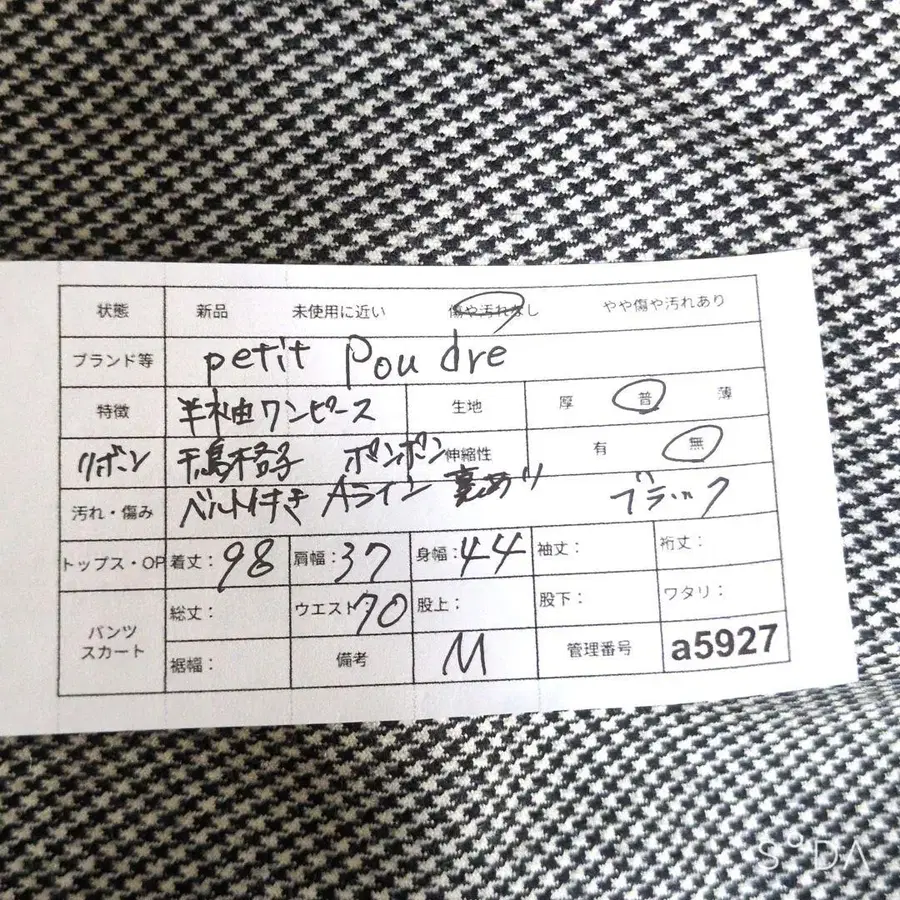 状態 新品 未使用に近い 傷や汚れなし やや傷や汚れあり
ブランド等 petit Poudre
特徴 半袖ワンピース 生地 厚 普 薄
リボン 千鳥格子 ボンボン 伸縮性 有 無
汚れ・傷み ベルト付き Aライン 裏あり ブラック
トップス・OP 着丈:98 肩幅:37 身幅:44 袖丈: 裄丈:
パンツ スカート 総丈: ウエスト:70 股上: 股下: ワタリ:
裾幅: 備考 M 管理番号 a5927
SODA